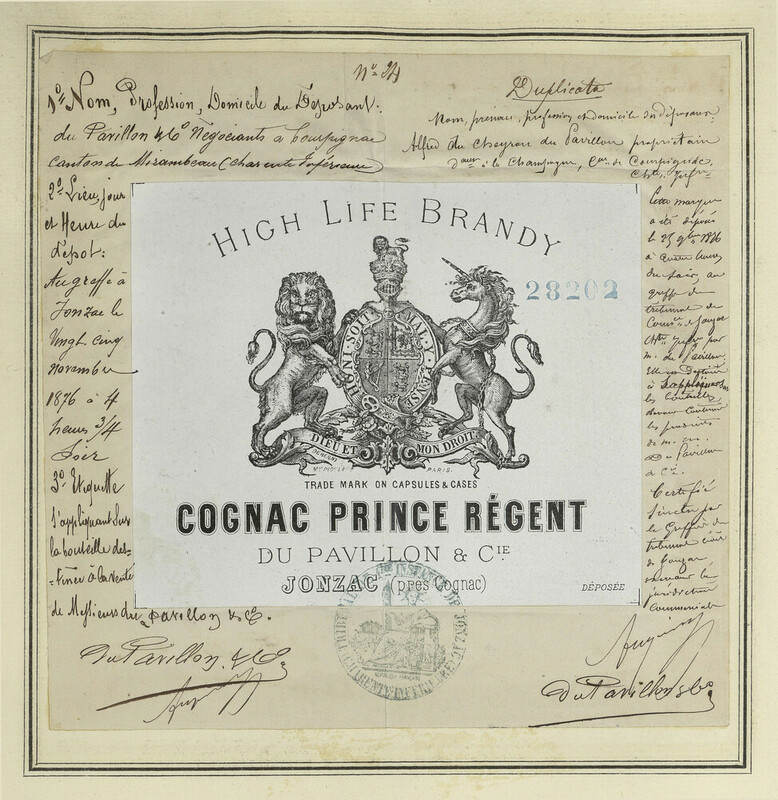 Nº 24
1º Nom, Profession, Domicile du Déposant:
du Pavillon & Cº Négociants à Courpignac
canton de Mirambeau (Charente Inférieure
Duplicata
Nom, prénoms, profession et domicile du déposant
Alfred du Cheyron du Pavillon propriétaire
à la Champagne, de Courpignac,
2º Lieu, jour
et Heure du
Dépot:
Au greffe à
Jonzac le
Vingt cinq
novembre
1876 à 4
heures 3/4
Soir
3º Etiquette
s'appliquant sur
la bouteille des-
-tinée à la vente
de Messieurs du Pavillon & C.
HIGH LIFE BRANDY
28202
HONI SOIT MAL Y PENSE
DIEU ET MON DROIT
PARIS.
TRADE MARK ON CAPSULES & CASES
COGNAC PRINCE RÉGENT
DU PAVILLON & CIE
JONZAC (près Cognac)
DÉPOSÉE
Cette marque
a été déposée
le 25 9bre 1876
à quatre heures
du soir, au
greffe du
tribunal de
de Jonzac
par
m. du Pavillon.
Elle est destinée
à
les bouteilles
devant contenir
les produits
de m.
Du Pavillon
& Cie.
Certifié
sincère par
le Greffier du
tribunal civil
de Jonzac
la
juridiction
commerciale
Du Pavillon & C
Du Pavillon & Co
TRIBUNAL INSTANCE DE JONZAC
CHARENTE INFERE